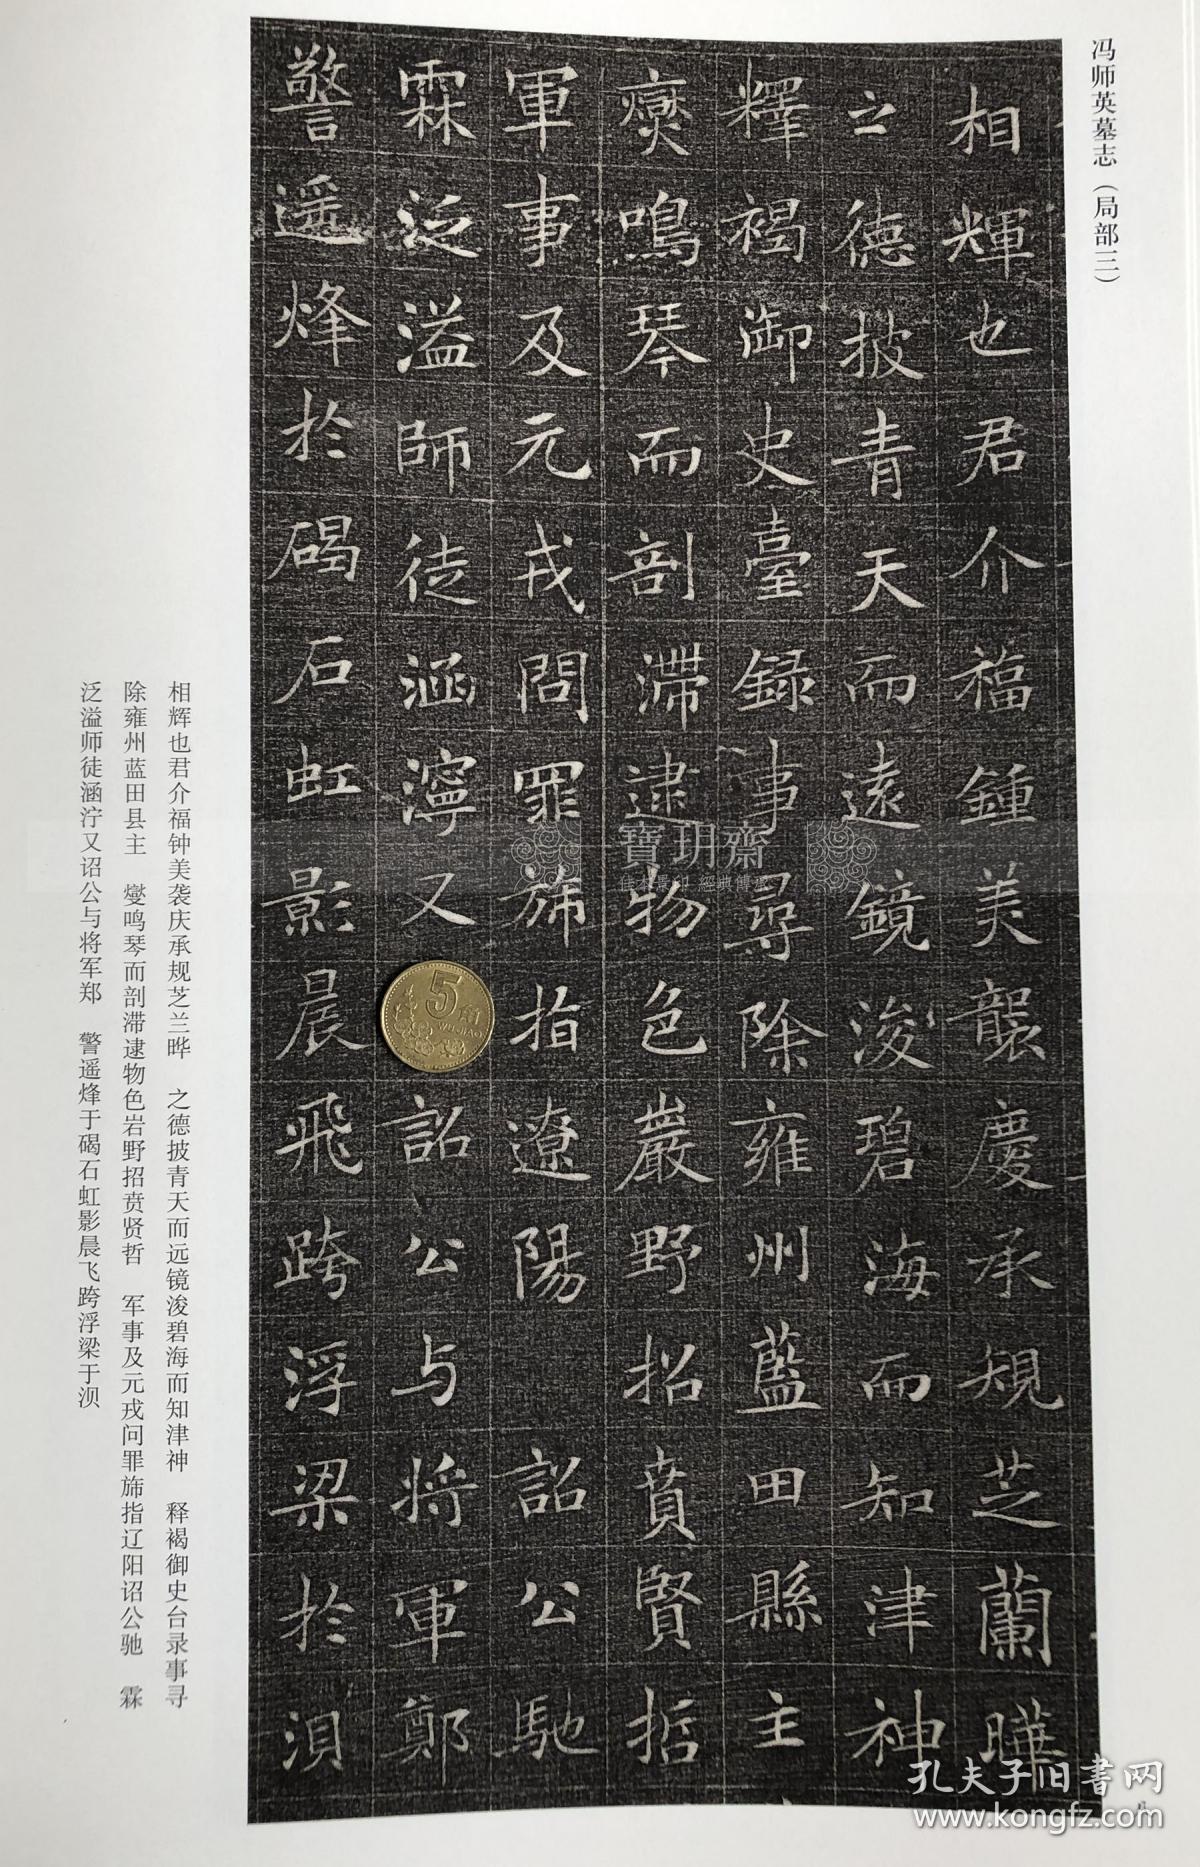 冯师英墓志（局部三）
相輝也君介福鍾美襲慶承規芝蘭曄
之德披青天而遠鏡浚碧海而知津神
釋褐御史臺録事尋除雍州藍田縣主
爕鳴琴而剖滯逮物色巖野招賁賢哲
軍事及元戎問罪斾指遼陽 詔公馳
霖泛溢師徒涵濘又 詔公与將軍鄭
警遥烽於碣石虹影晨飛跨浮梁於浿
5角
WU JIAO
相辉也君介福钟美袭庆承规芝兰晔 之德披青天而远镜浚碧海而知津神 释褐御史台录事寻
除雍州蓝田县主 燮鸣琴而剖滞逮物色岩野招贲贤哲 军事及元戎问罪旆指辽阳诏公驰 霖
泛溢师徒涵泞又诏公与将军郑 警遥烽于碣石虹影晨飞跨浮梁于浿
寶玥齋
佳本影印 經典傳承
孔夫子旧书网
www.kongfz.com